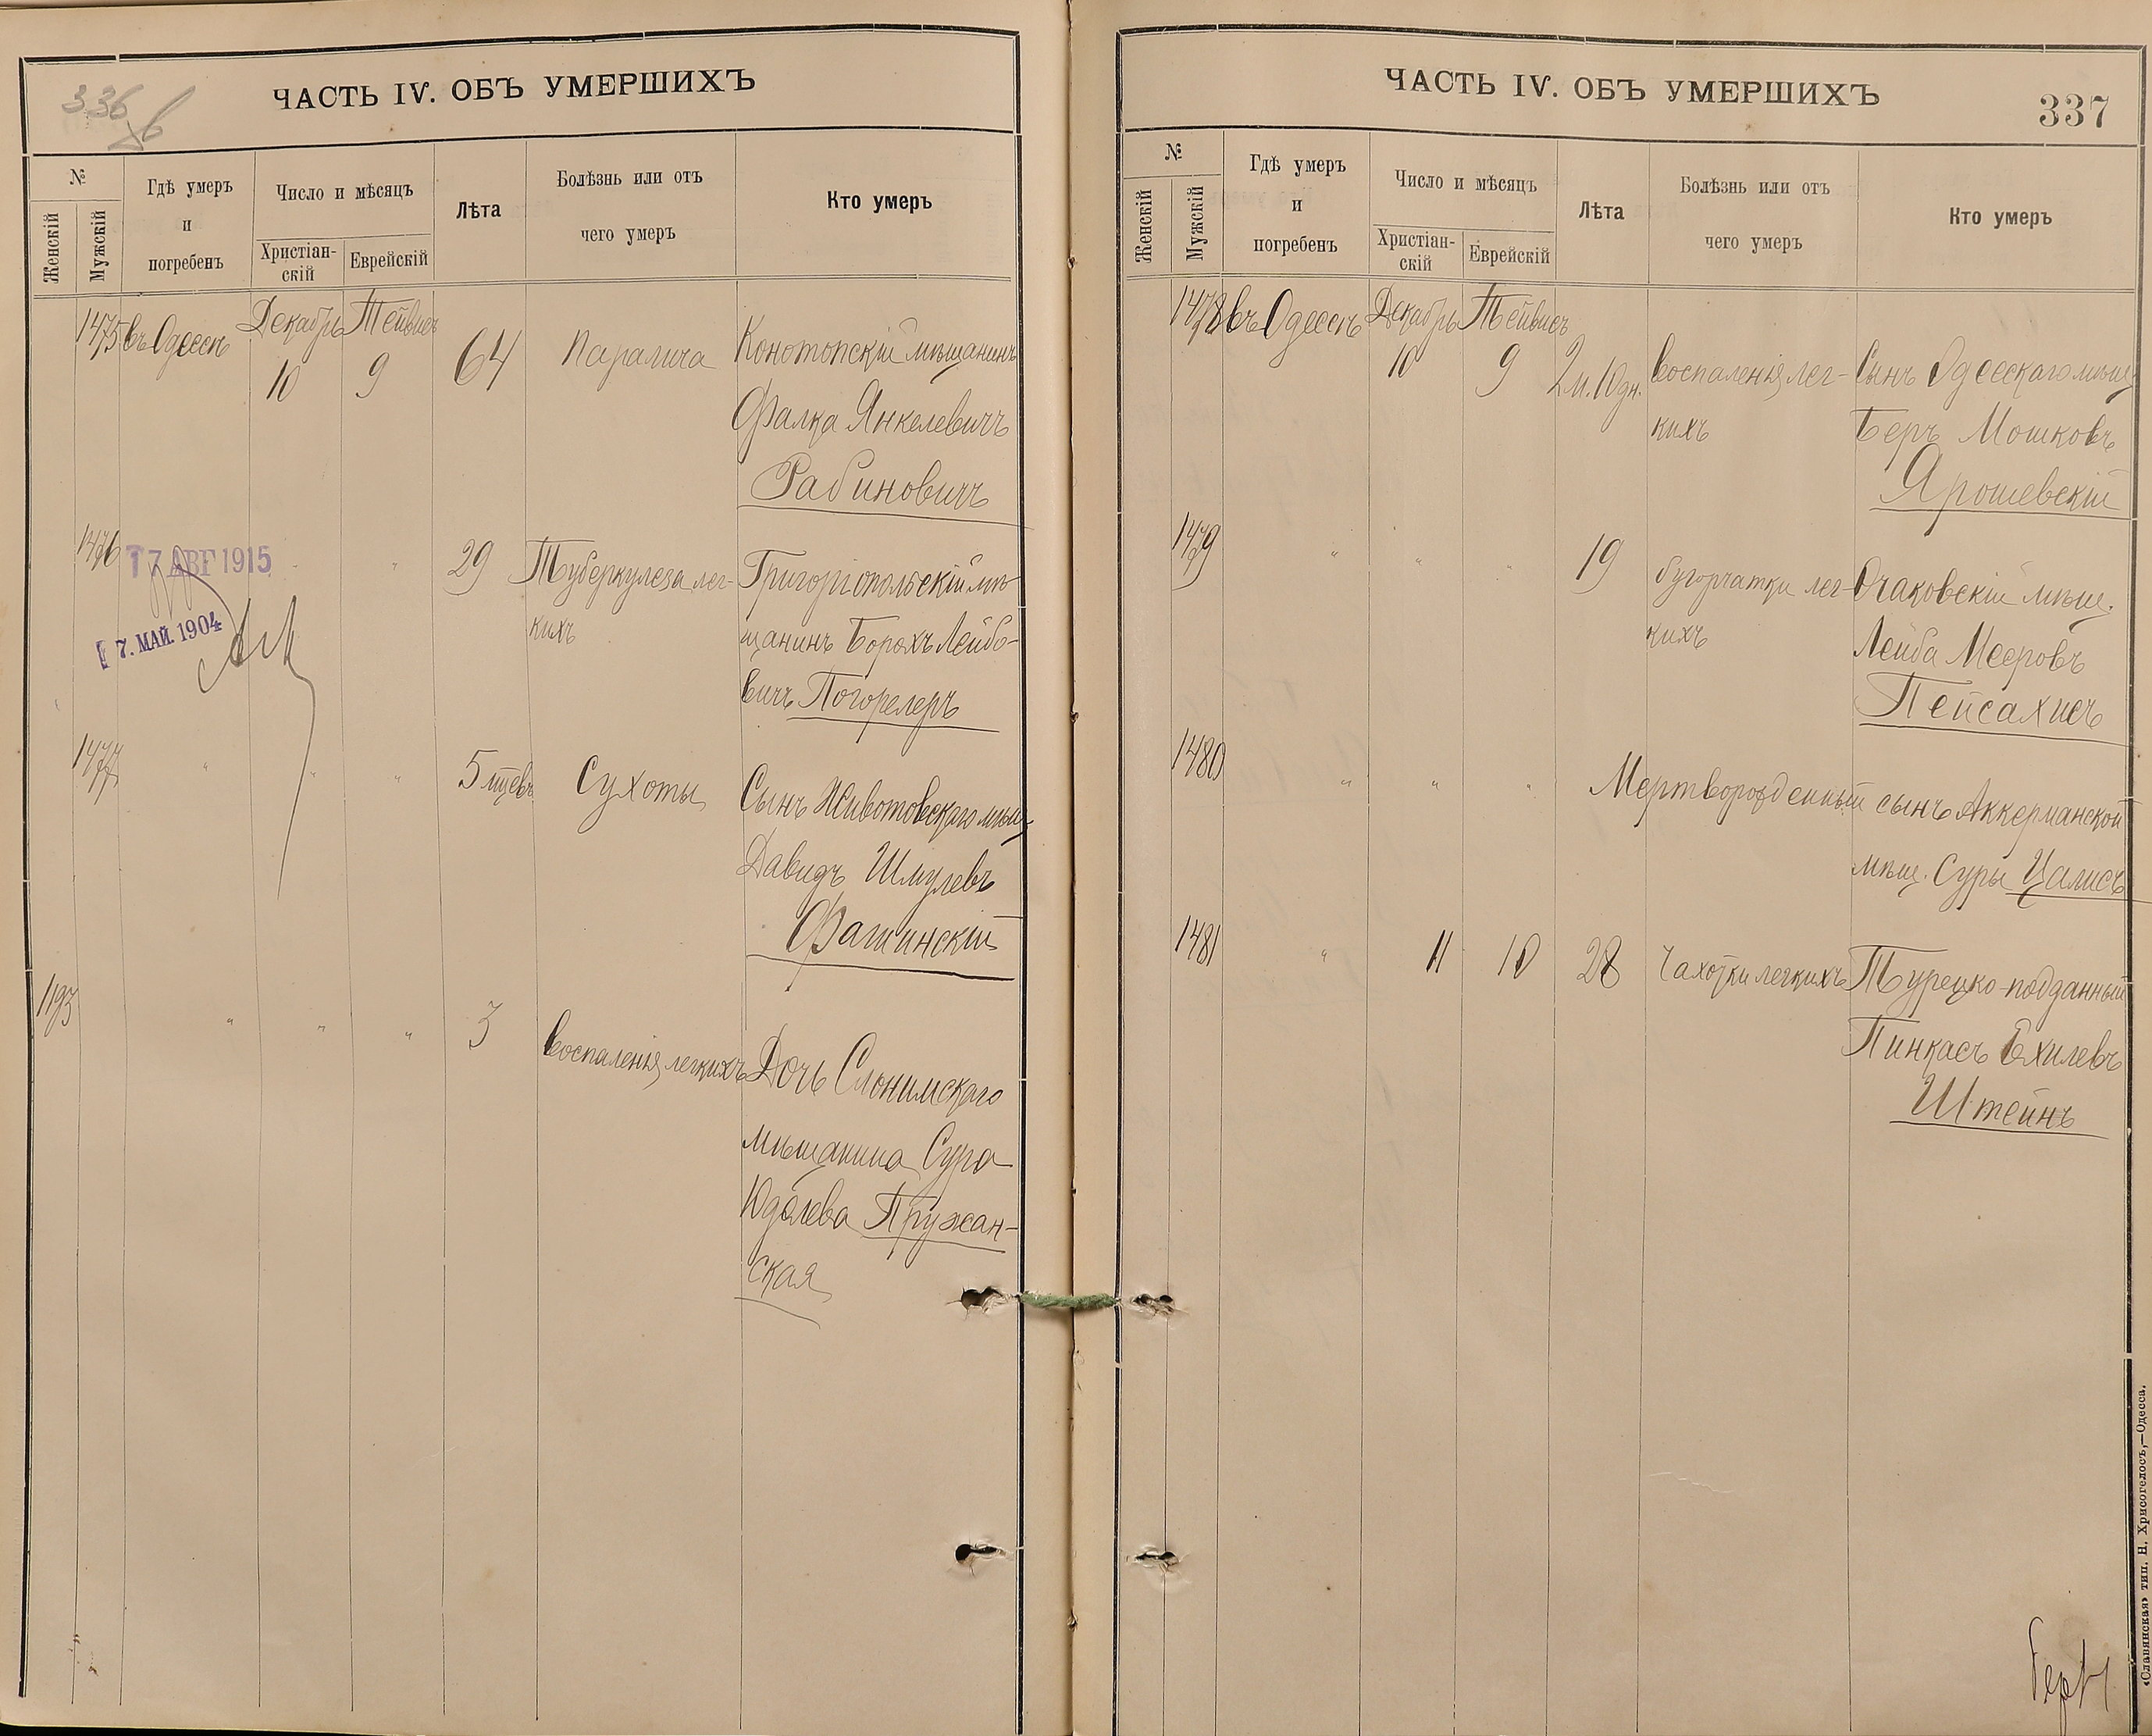 336
ЧАСТЬ IV. ОБЪ УМЕРШИХЪ
№
Женскій
Мужскій
Гдѣ умеръ
и
погребенъ
Число и мѣсяцъ
Христіан-
скій
Еврейскій
Лѣта
Болѣзнь или отъ
чего умеръ
Кто умеръ
1475 въ Одессѣ Декабрь Тейвисъ
10 9 64 Паралича Конотопскій мѣщанинъ
Фалка Янкелевичъ
Рабиновичъ
1476 " " 29 Туберкулеза лег- Григоріопольскій мѣ-
кихъ щанинъ Борохъ Лейбо-
вичъ Погорелеръ
17 АВГ 1915
7. МАЙ. 1904
1477 " " " 5 мцевъ Сухоты Сынъ Животовскаго мѣщ.
Давидъ Шмулевъ
1193 " " " 3 воспаленія легкихъ Дочь Слонимскаго
мѣщанина Сура
Юделева Пружан-
ская
ЧАСТЬ IV. ОБЪ УМЕРШИХЪ
337
№
Женскій
Мужскій
Гдѣ умеръ
и
погребенъ
Число и мѣсяцъ
Христіан-
скій
Еврейскій
Лѣта
Болѣзнь или отъ
чего умеръ
Кто умеръ
1478 въ Одессѣ Декабрь Тейвисъ
10 9 2 м. 10 дн. воспаленія лег- Сынъ Одесскаго мѣщ.
кихъ Беръ Мошковъ
Ярошевскій
1479 " " " 19 бугорчатки лег- Очаковскій мѣщ.
кихъ Лейба Мееровъ
Пейсахисъ
1480 " " " Мертворожденный сынъ Аккерманской
мѣщ. Суры Цалисъ
1481 " 11 10 28 Чахотки легкихъ Турецко-подданный
Пинкасъ Ехилевъ
Штейнъ
«Славянская» тип. Н. Хрисогелосъ,—Одесса.